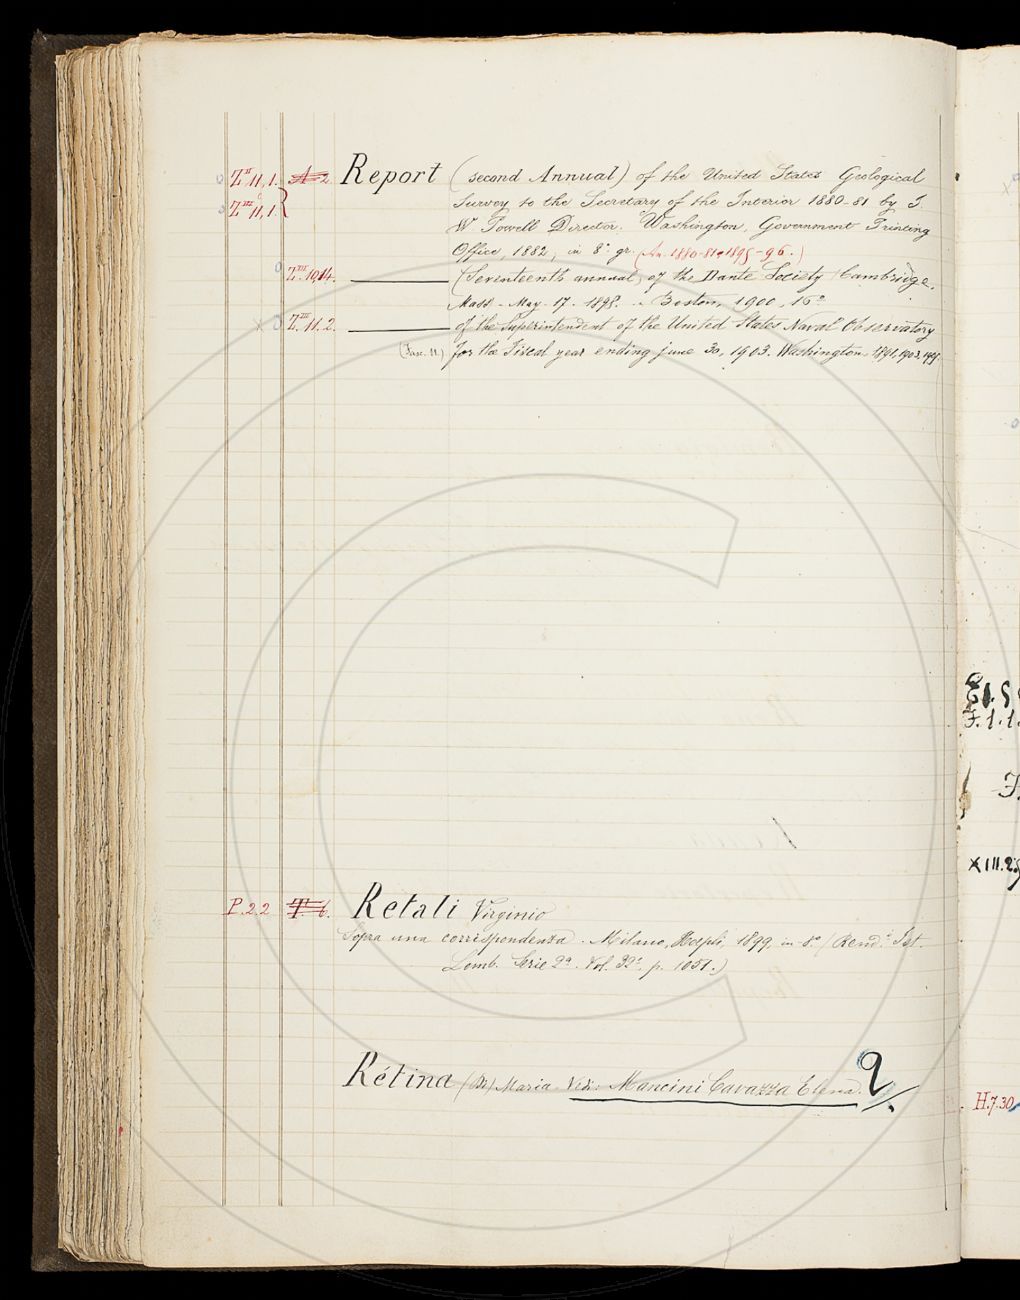 Z^II 11,1. A 2 Report (second Annual) of the United States Geological
Z^III 11,1. Survey to the Secretary of the Interior 1880-81 by J.
W Powell Director. Washington, Government Printing
Office, 1882, in 8° gr. (An. 1880-81 1895-96.)
Z^III 10,14. (Seventeenth annual) of the Dante Society (Cambridge.
Mass - May 17. 1898. Boston, 1900, 16°
Z^III 11.2. of the Superintendent of the United States Naval Observatory
(Fasc. 11) for the Fiscal year ending june 30, 1903. Washington
P.2.2 T. 6. Retali Virginio
Sopra una corrispondenza. Milano, Hoepli, 1899, in-8° (Rend.i Ist.
Lomb. Serie 2a. Vol. 32° p. 1051.)
Rétina (De) Maria. Vedi: Mancini Cavazza Elena.
F.1.1.
XIII.2.
H.7.30